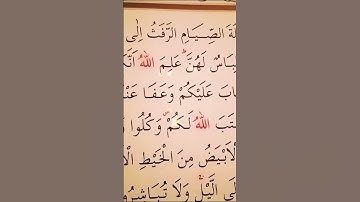 لَةَ الصِّيَامِ الرَّفَثُ اِلٰى
بَاسٌ لَهُنَّ عَلِمَ اللّٰهُ اَنَّكُ
ابَ عَلَيْكُمْ وَعَفَا عَنْ
تَبَ اللّٰهُ لَكُمْ وَكُلُوا وَ
الْاَبْيَضُ مِنَ الْخَيْطِ الْا
لَى الَّيْلِ وَلَا تُبَاشِرُو